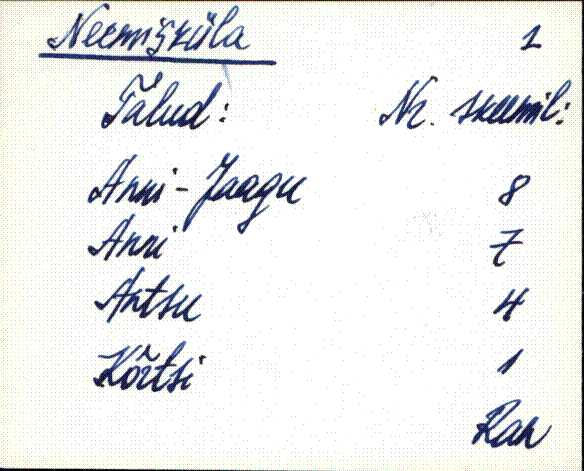 Neemisküla 1
Talud: Nr. skeemil:
Anni-Jaagu 8
Anni 7
Antsu 4
Kõrtsi 1
Ran